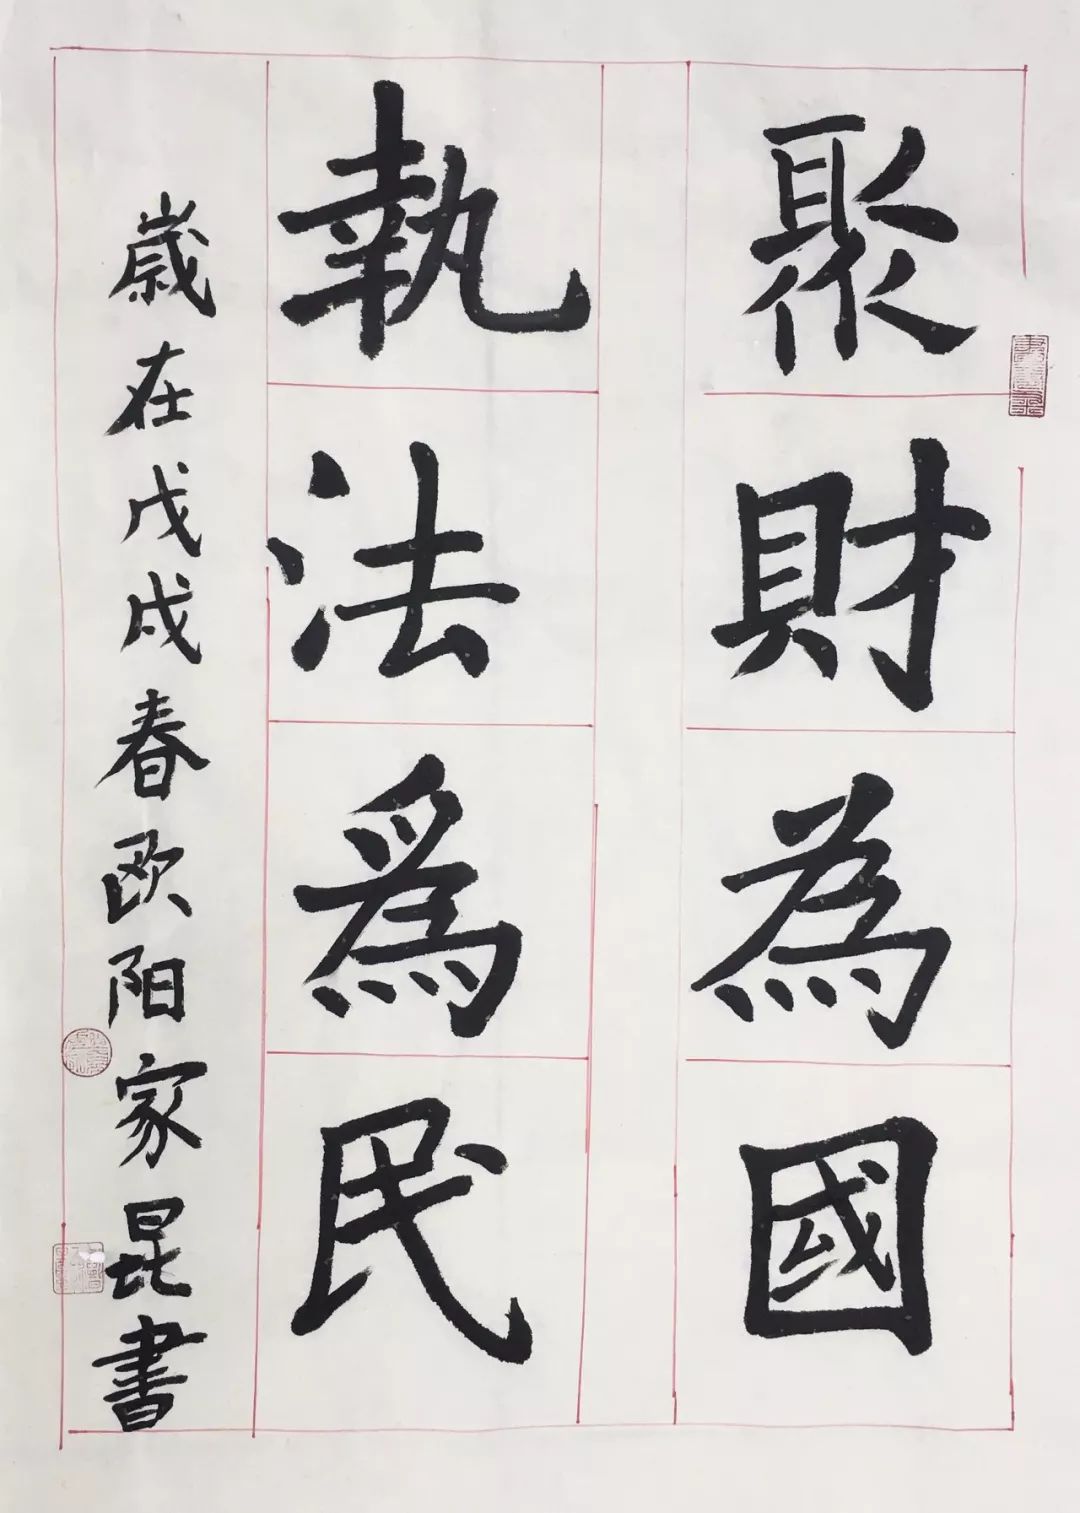 聚財為國
執法爲民
歲在戊戌春欧阳家昆書